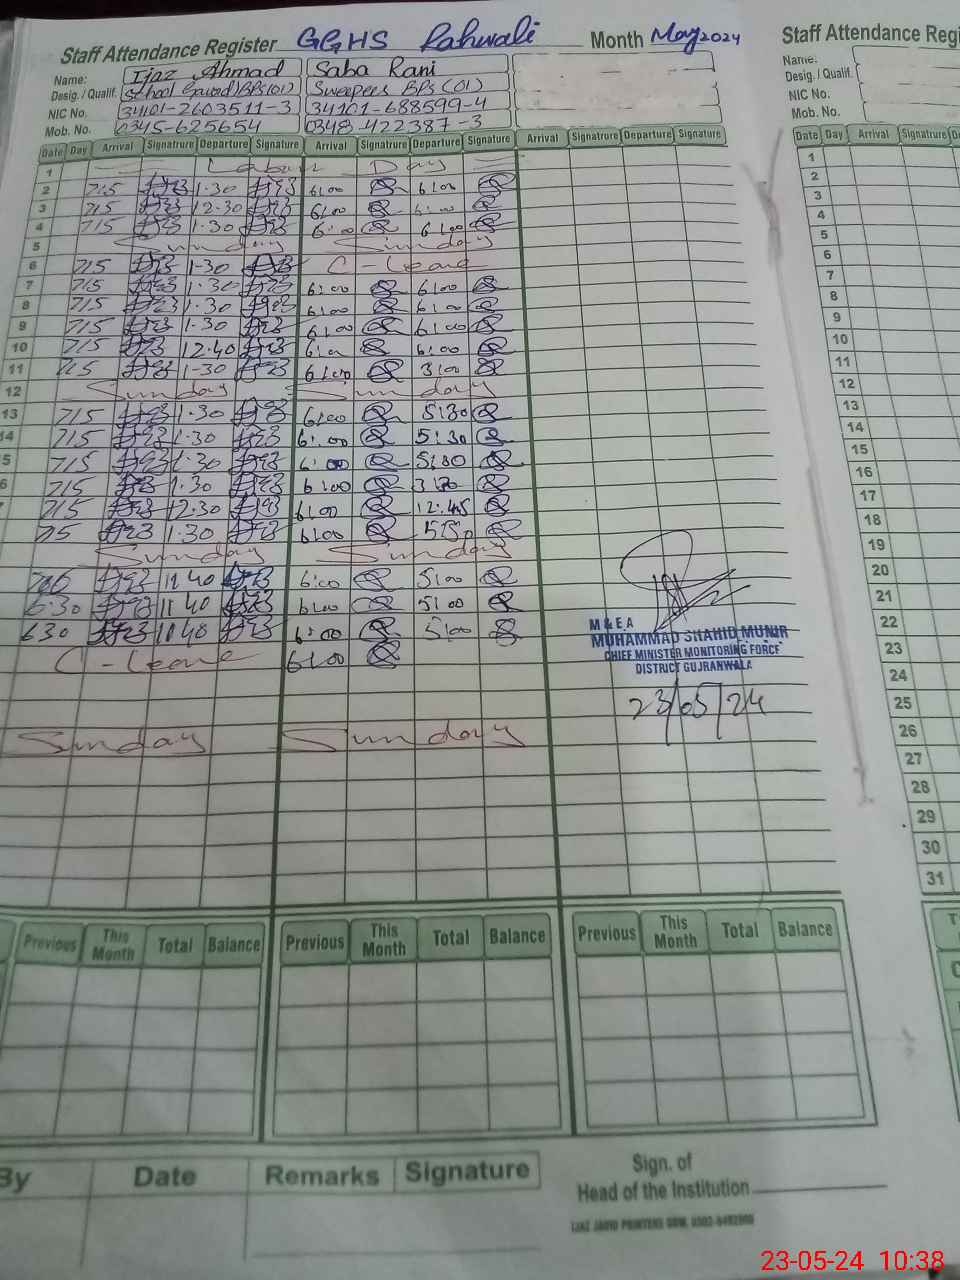 Staff Attendance Register GGHS Rahwali Month May 2024
Name: Ijaz Ahmad Saba Rani
Desig. / Qualif. School BPS(01) Sweeper BPS (01)
NIC No. 34101-2603511-3 34101-688599-4
Mob. No. 0345-625654 0348-422387-3
Date Day Arrival Signatrure Departure Signature Arrival Signatrure Departure Signature Arrival Signatrure Departure Signature
1 Labour Day
2 715 1·30 6:00 6:00
3 715 12·30 6:00 6:00
4 715 1·30 6:00 6:00
5 Sunday Sunday
6 715 1-30 C-Leave
7 715 1·30 6:00 6:00
8 715 1·30 6:00 6:00
9 715 1·30 6:00 6:00
10 715 12·40 6:00 6:00
11 715 1-30 6:00 3:00
12 Sunday Sunday
13 715 1·30 6:00 5:30
14 715 1·30 6:00 5:30
5 715 1·30 6:00 5:30
6 715 1·30 6:00
715 12·30 6:00 12:45
715 1·30 6:00
Sunday Sunday
11 40 6:00 5:00
6:30 11 40 6:00 5:00
630 11 40 6:00 5:00
C-Leave 6:00
Sunday Sunday
M & E A
MUHAMMAD SHAHID MUNIR
CHIEF MINISTER MONITORING FORCE
DISTRICT GUJRANWALA
23/05/24
Previous This Month Total Balance Previous This Month Total Balance Previous This Month Total Balance
By Date Remarks Signature
Sign. of
Head of the Institution
Staff Attendance Regi
Name:
Desig. / Qualif.
NIC No.
Mob. No.
Date Day Arrival Signatrure
1
2
3
4
5
6
7
8
9
10
11
12
13
14
15
16
17
18
19
20
21
22
23
24
25
26
27
28
29
30
31
23-05-24 10:38